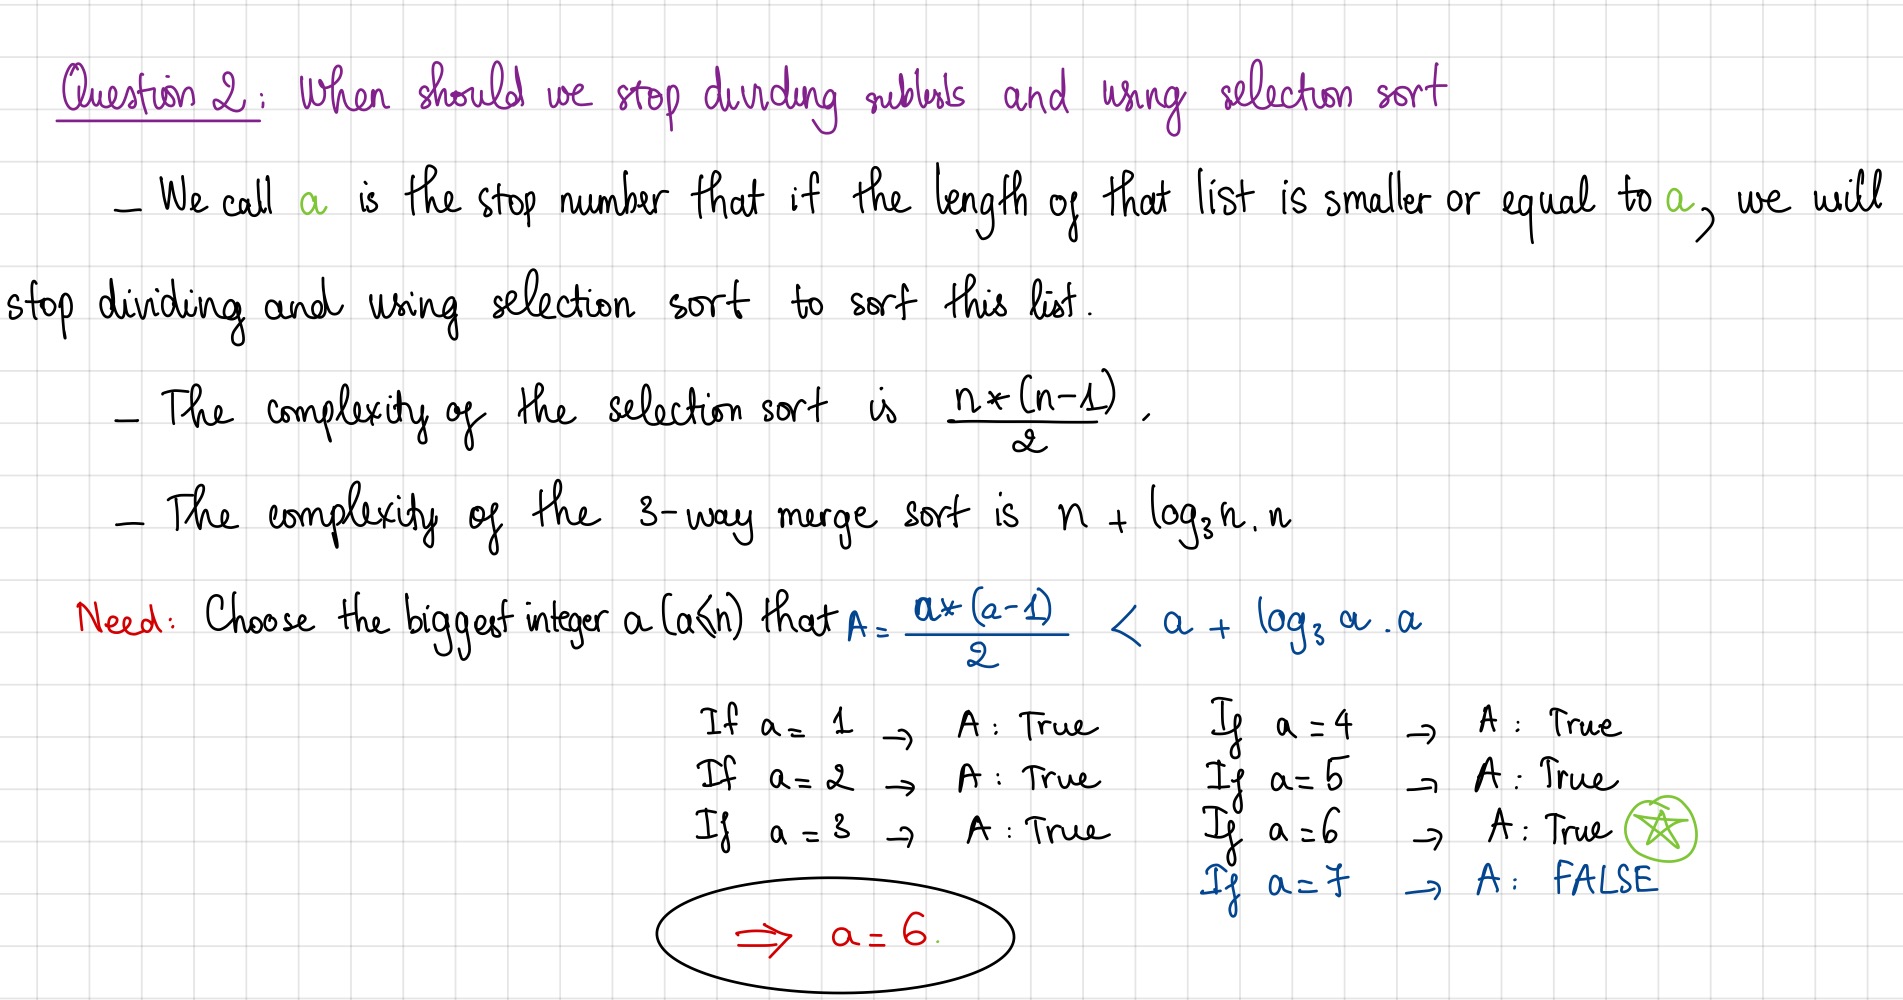 Question 2: When should we stop dividing sublists and using selection sort
– We call a is the stop number that if the length of that list is smaller or equal to a, we will
stop dividing and using selection sort to sort this list.
– The complexity of the selection sort is n*(n-1)/2.
– The complexity of the 3-way merge sort is n + log₃n.n
Need: Choose the biggest integer a (a≤n) that A = a*(a-1)/2 < a + log₃a.a
If a = 1 → A: True
If a = 2 → A: True
If a = 3 → A: True
If a = 4 → A: True
If a = 5 → A: True
If a = 6 → A: True
If a = 7 → A: FALSE
⇒ a = 6.